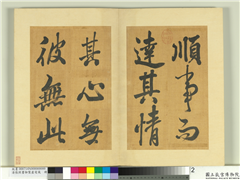 順事而
達其情
其心無
彼無此
2
國立故宮博物院